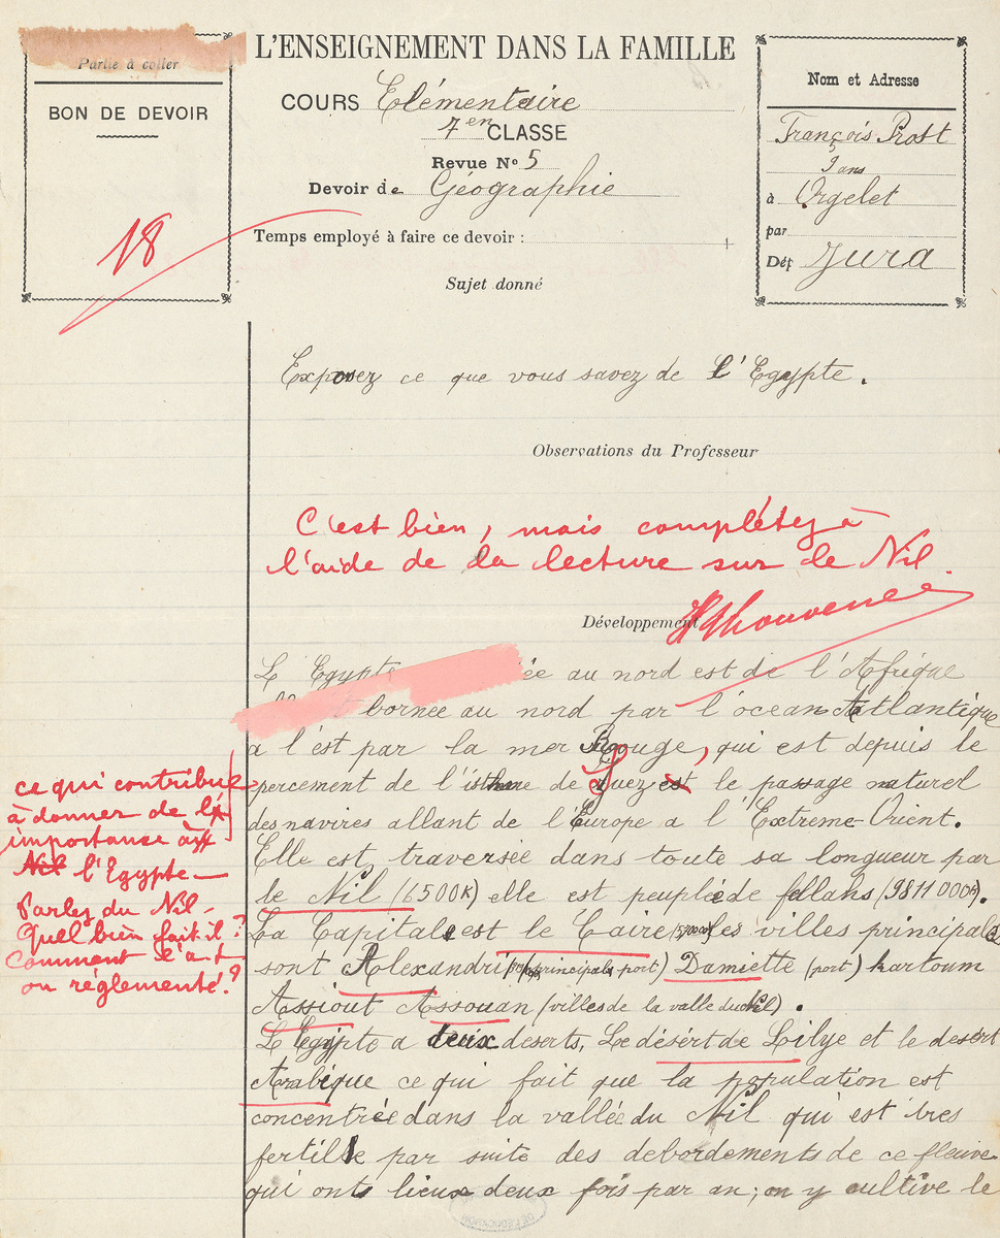 Partie à coller
BON DE DEVOIR
18
L'ENSEIGNEMENT DANS LA FAMILLE
COURS Elémentaire
7en CLASSE
Revue No 5
Devoir de Géographie
Temps employé à faire ce devoir :
Sujet donné
Nom et Adresse
François Prost
9 ans
à Orgelet
par
Dép Jura
Exposez ce que vous savez de l'Egypte.
Observations du Professeur
C'est bien, mais complétez à
l'aide de la lecture sur le Nil.
Développement
L'Egypte ée au nord est de l'Afrique
t bornée au nord par l'océan Atlantique
a l'est par la mer Rouge, qui est depuis le
percement de l'isthme de Suez est le passage naturel
des navires allant de l'Europe a l'Extreme-Orient.
Elle est traversée dans toute sa longueur par
le Nil (6500K) elle est peuplée de fellahs (9811000h).
La Capitale est le Caire les villes principales
sont Alexandri (principals port) Damiette (port) kartoum
Assiout Assouan (villes de la valle du Nil).
L'Egypte a deux deserts, Le désért de Lilye et le desert
Arabique ce qui fait que la population est
concentrée dans la vallée du Nil qui est tres
fertille par suite des debordements de ce fleuve
qui ont lieux deux fois par an; on y cultive le
ce qui contribue
à donner de l'
importance à
Nil l'Egypte—
Parlez du Nil-
Quel bien fait-il?
Comment l'a-t
on réglementé?